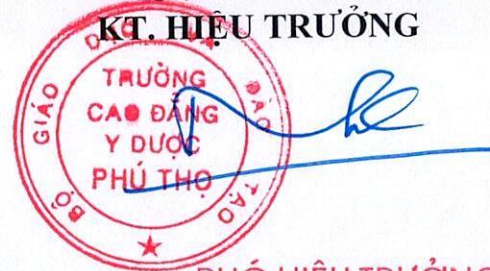 KT. HIỆU TRƯỞNG
BỘ GIÁO DỤC VÀ ĐÀO TẠO
TRƯỜNG
CAO ĐẲNG
Y DƯỢC
PHÚ THỌ
PHÓ HIỆU TRƯỞNG